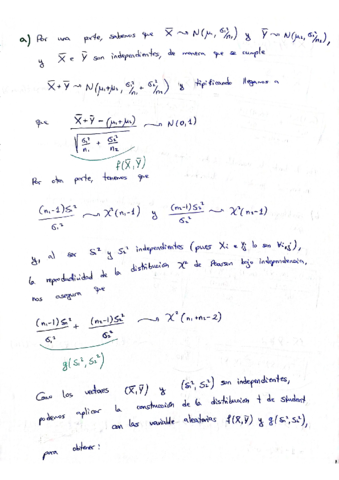 a) Por una parte, sabemos que X̄ ⤳ N(μ₁, σ₁²/n₁) y Ȳ ⤳ N(μ₂, σ₂²/n₂),
y X̄ e Ȳ son independientes, de manera que se cumple
X̄+Ȳ ⤳ N(μ₁+μ₂, σ₁²/n₁ + σ₂²/n₂) y tipificando llegamos a
que (X̄+Ȳ − (μ₁+μ₂)) / √(σ₁²/n₁ + σ₂²/n₂) ⤳ N(0,1)
f(X̄,Ȳ)
Por otra parte, tenemos que
(n₁−1)S₁²/σ₁² ⤳ χ²(n₁−1) y (n₂−1)S₂²/σ₂² ⤳ χ²(n₂−1)
y, al ser S₁² y S₂² independientes (pues Xi e Yj lo son ∀i,j),
la reproductividad de la distribución χ² de Pearson bajo independencia,
nos asegura que
(n₁−1)S₁²/σ₁² + (n₂−1)S₂²/σ₂² ⤳ χ²(n₁+n₂−2)
g(S₁², S₂²)
Como los vectores (X̄,Ȳ) y (S₁², S₂²) son independientes,
podemos aplicar la construcción de la distribución t de Student
con las variable aleatorias f(X̄,Ȳ) y g(S₁², S₂²),
para obtener: